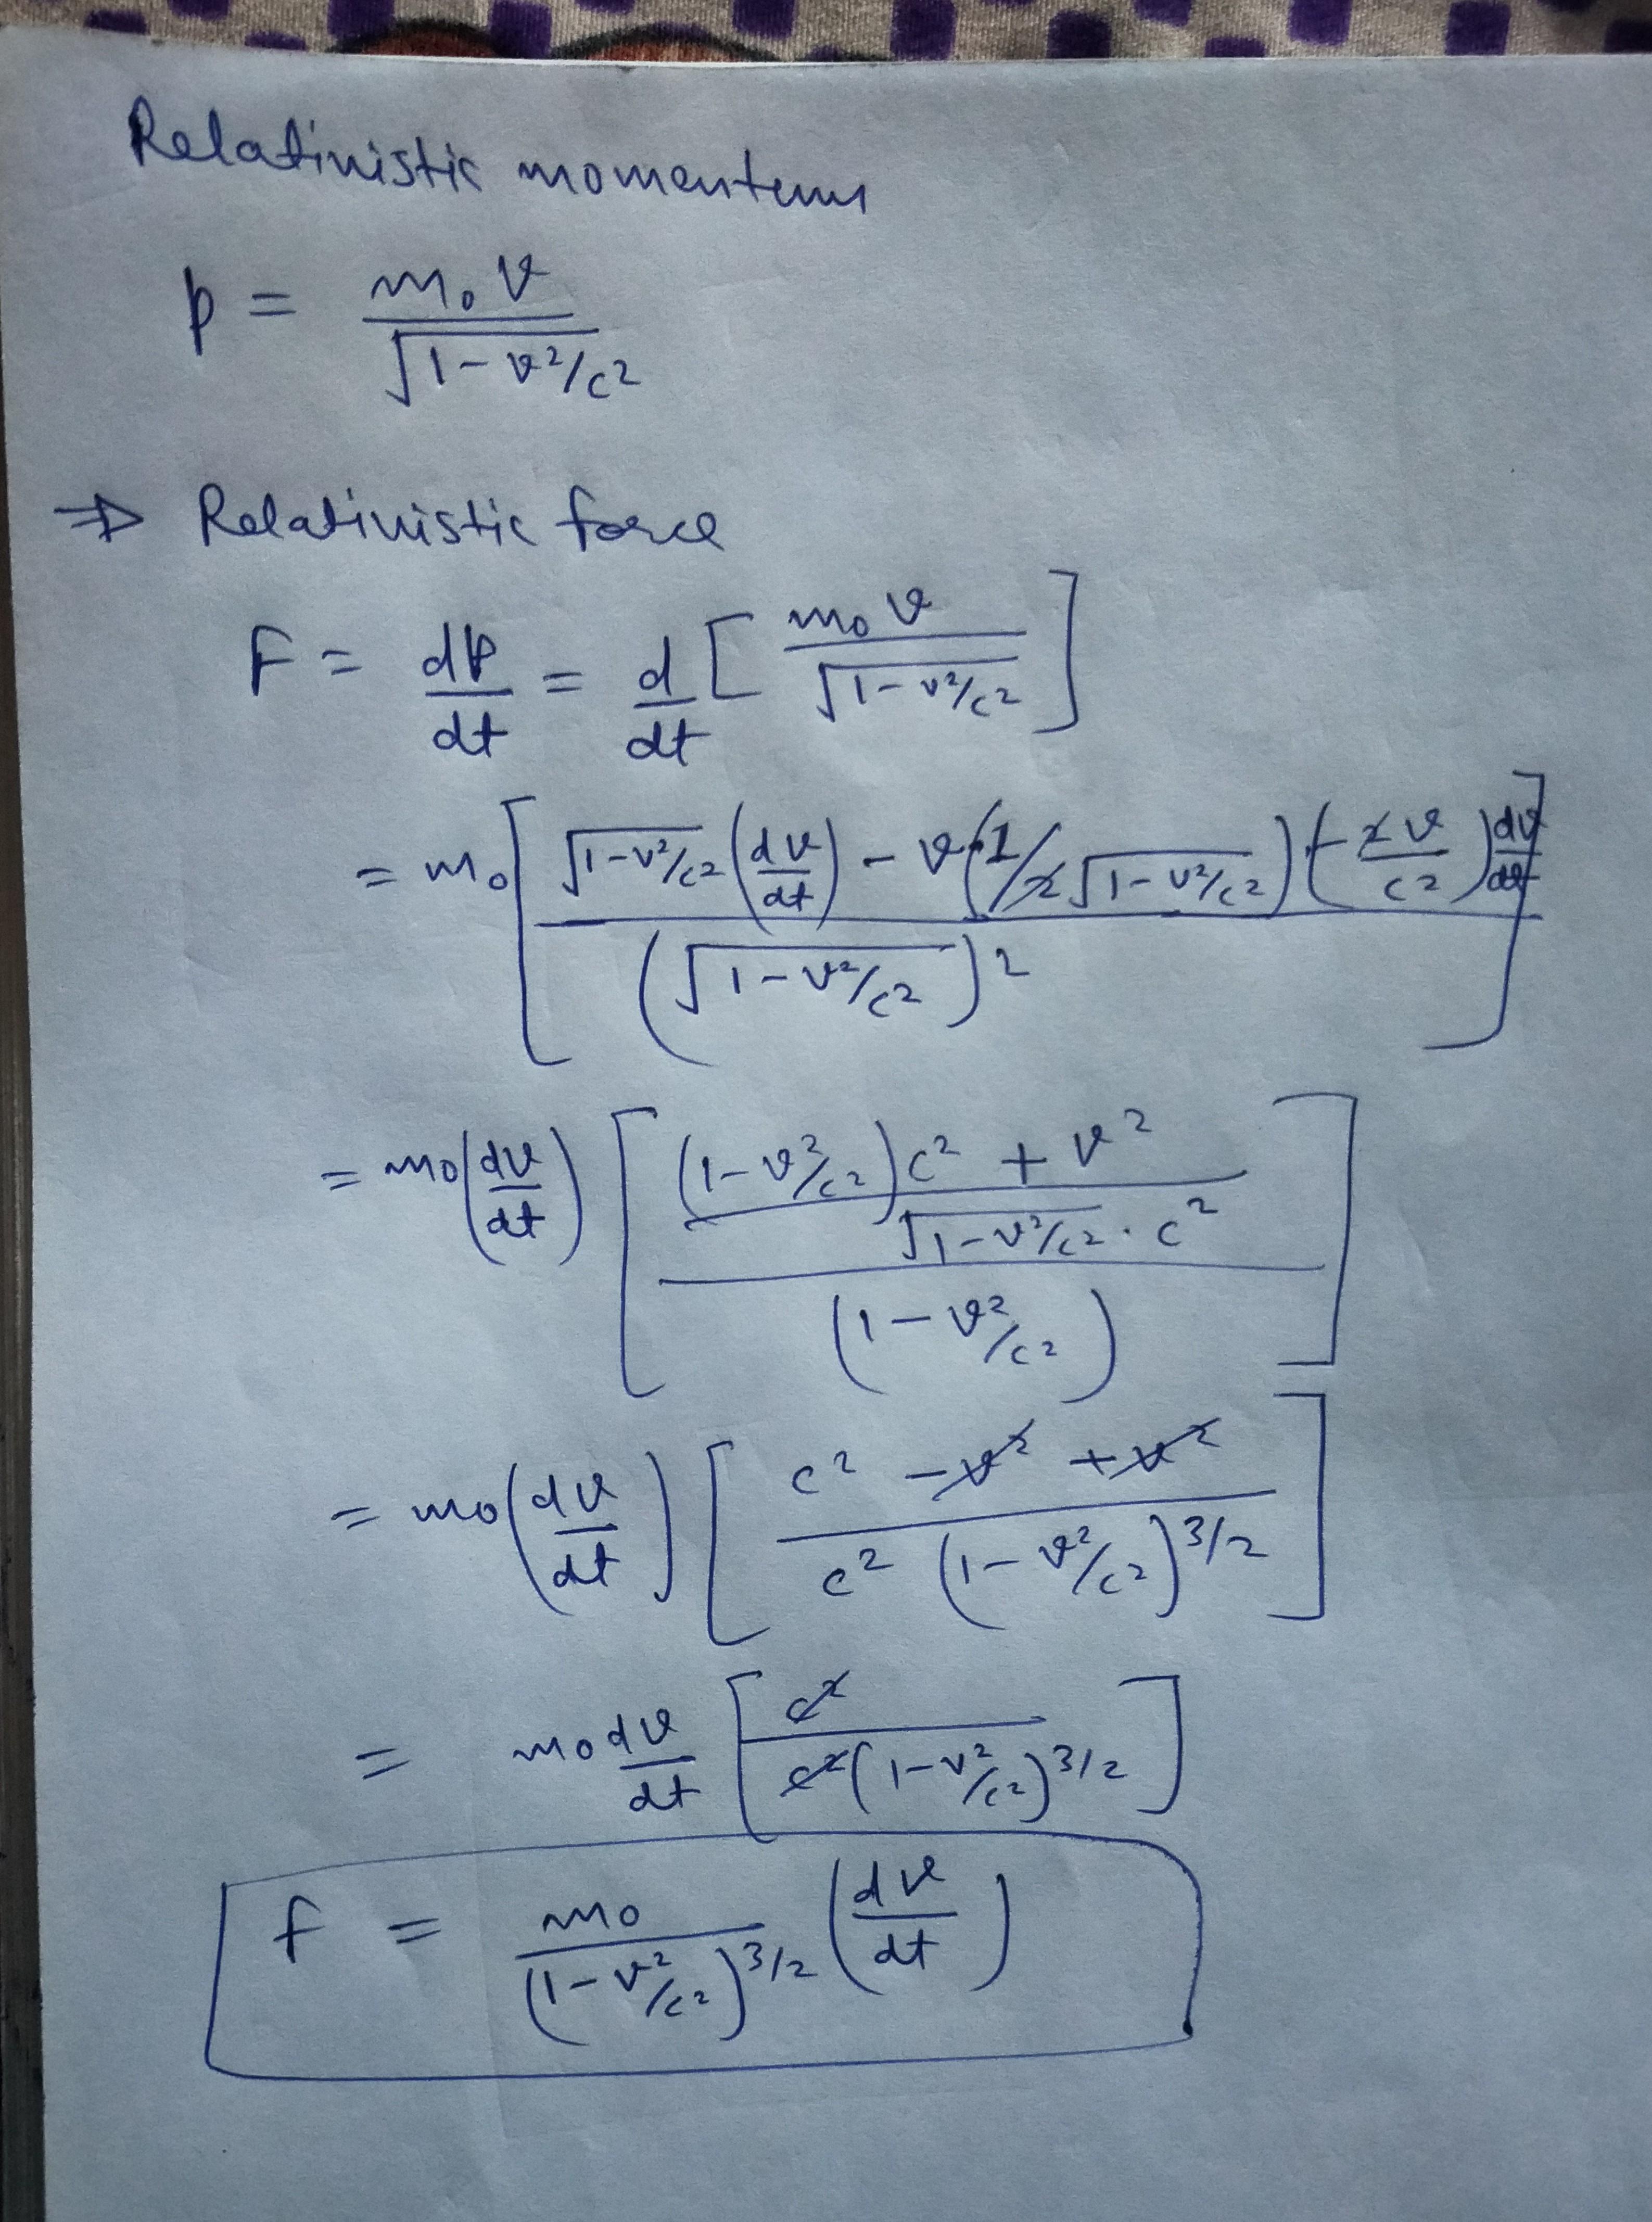 Relativistic momentum
p = m₀v / √(1 - v²/c²)
⇒ Relativistic force
F = dp/dt = d/dt [ m₀v / √(1 - v²/c²) ]
= m₀ [ ( √(1 - v²/c²) (dv/dt) - v (1/2√(1 - v²/c²)) (-2v/c²) dv/dt ) / (√(1 - v²/c²))² ]
= m₀ (dv/dt) [ ( ((1 - v²/c²)c² + v²) / (√(1 - v²/c²) · c²) ) / (1 - v²/c²) ]
= m₀ (dv/dt) [ (c² - v² + v²) / (c² (1 - v²/c²)^3/2) ]
= m₀ dv/dt [ c² / (c² (1 - v²/c²)^3/2) ]
F = m₀ / (1 - v²/c²)^3/2 (dv/dt)